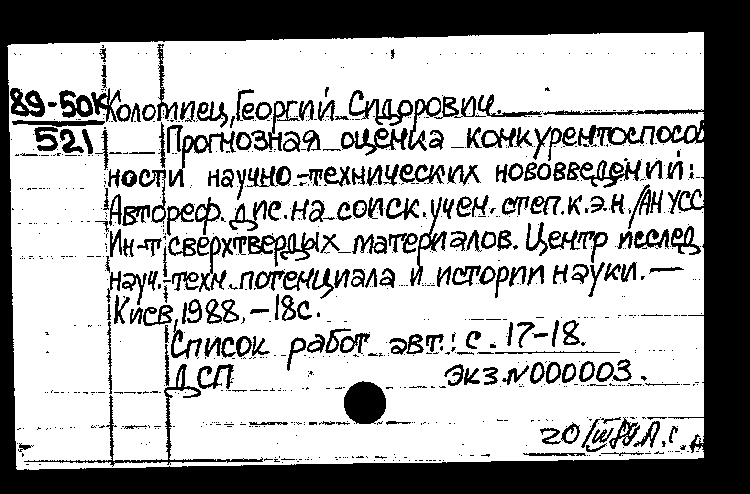 89-50к Коломиец, Георгий Сидорович.
521 Прогнозная оценка конкурентоспособ
ности научно-технических нововведений:
Автореф. дис. на соиск. учен. степ. к.э.н. /АН УССР
Ин-т сверхтвердых материалов. Центр исслед.
науч.-техн. потенциала и истории науки. —
Киев, 1988. – 18с.
Список работ авт.: с. 17-18.
ДСП экз. № 000003.
20/III 89